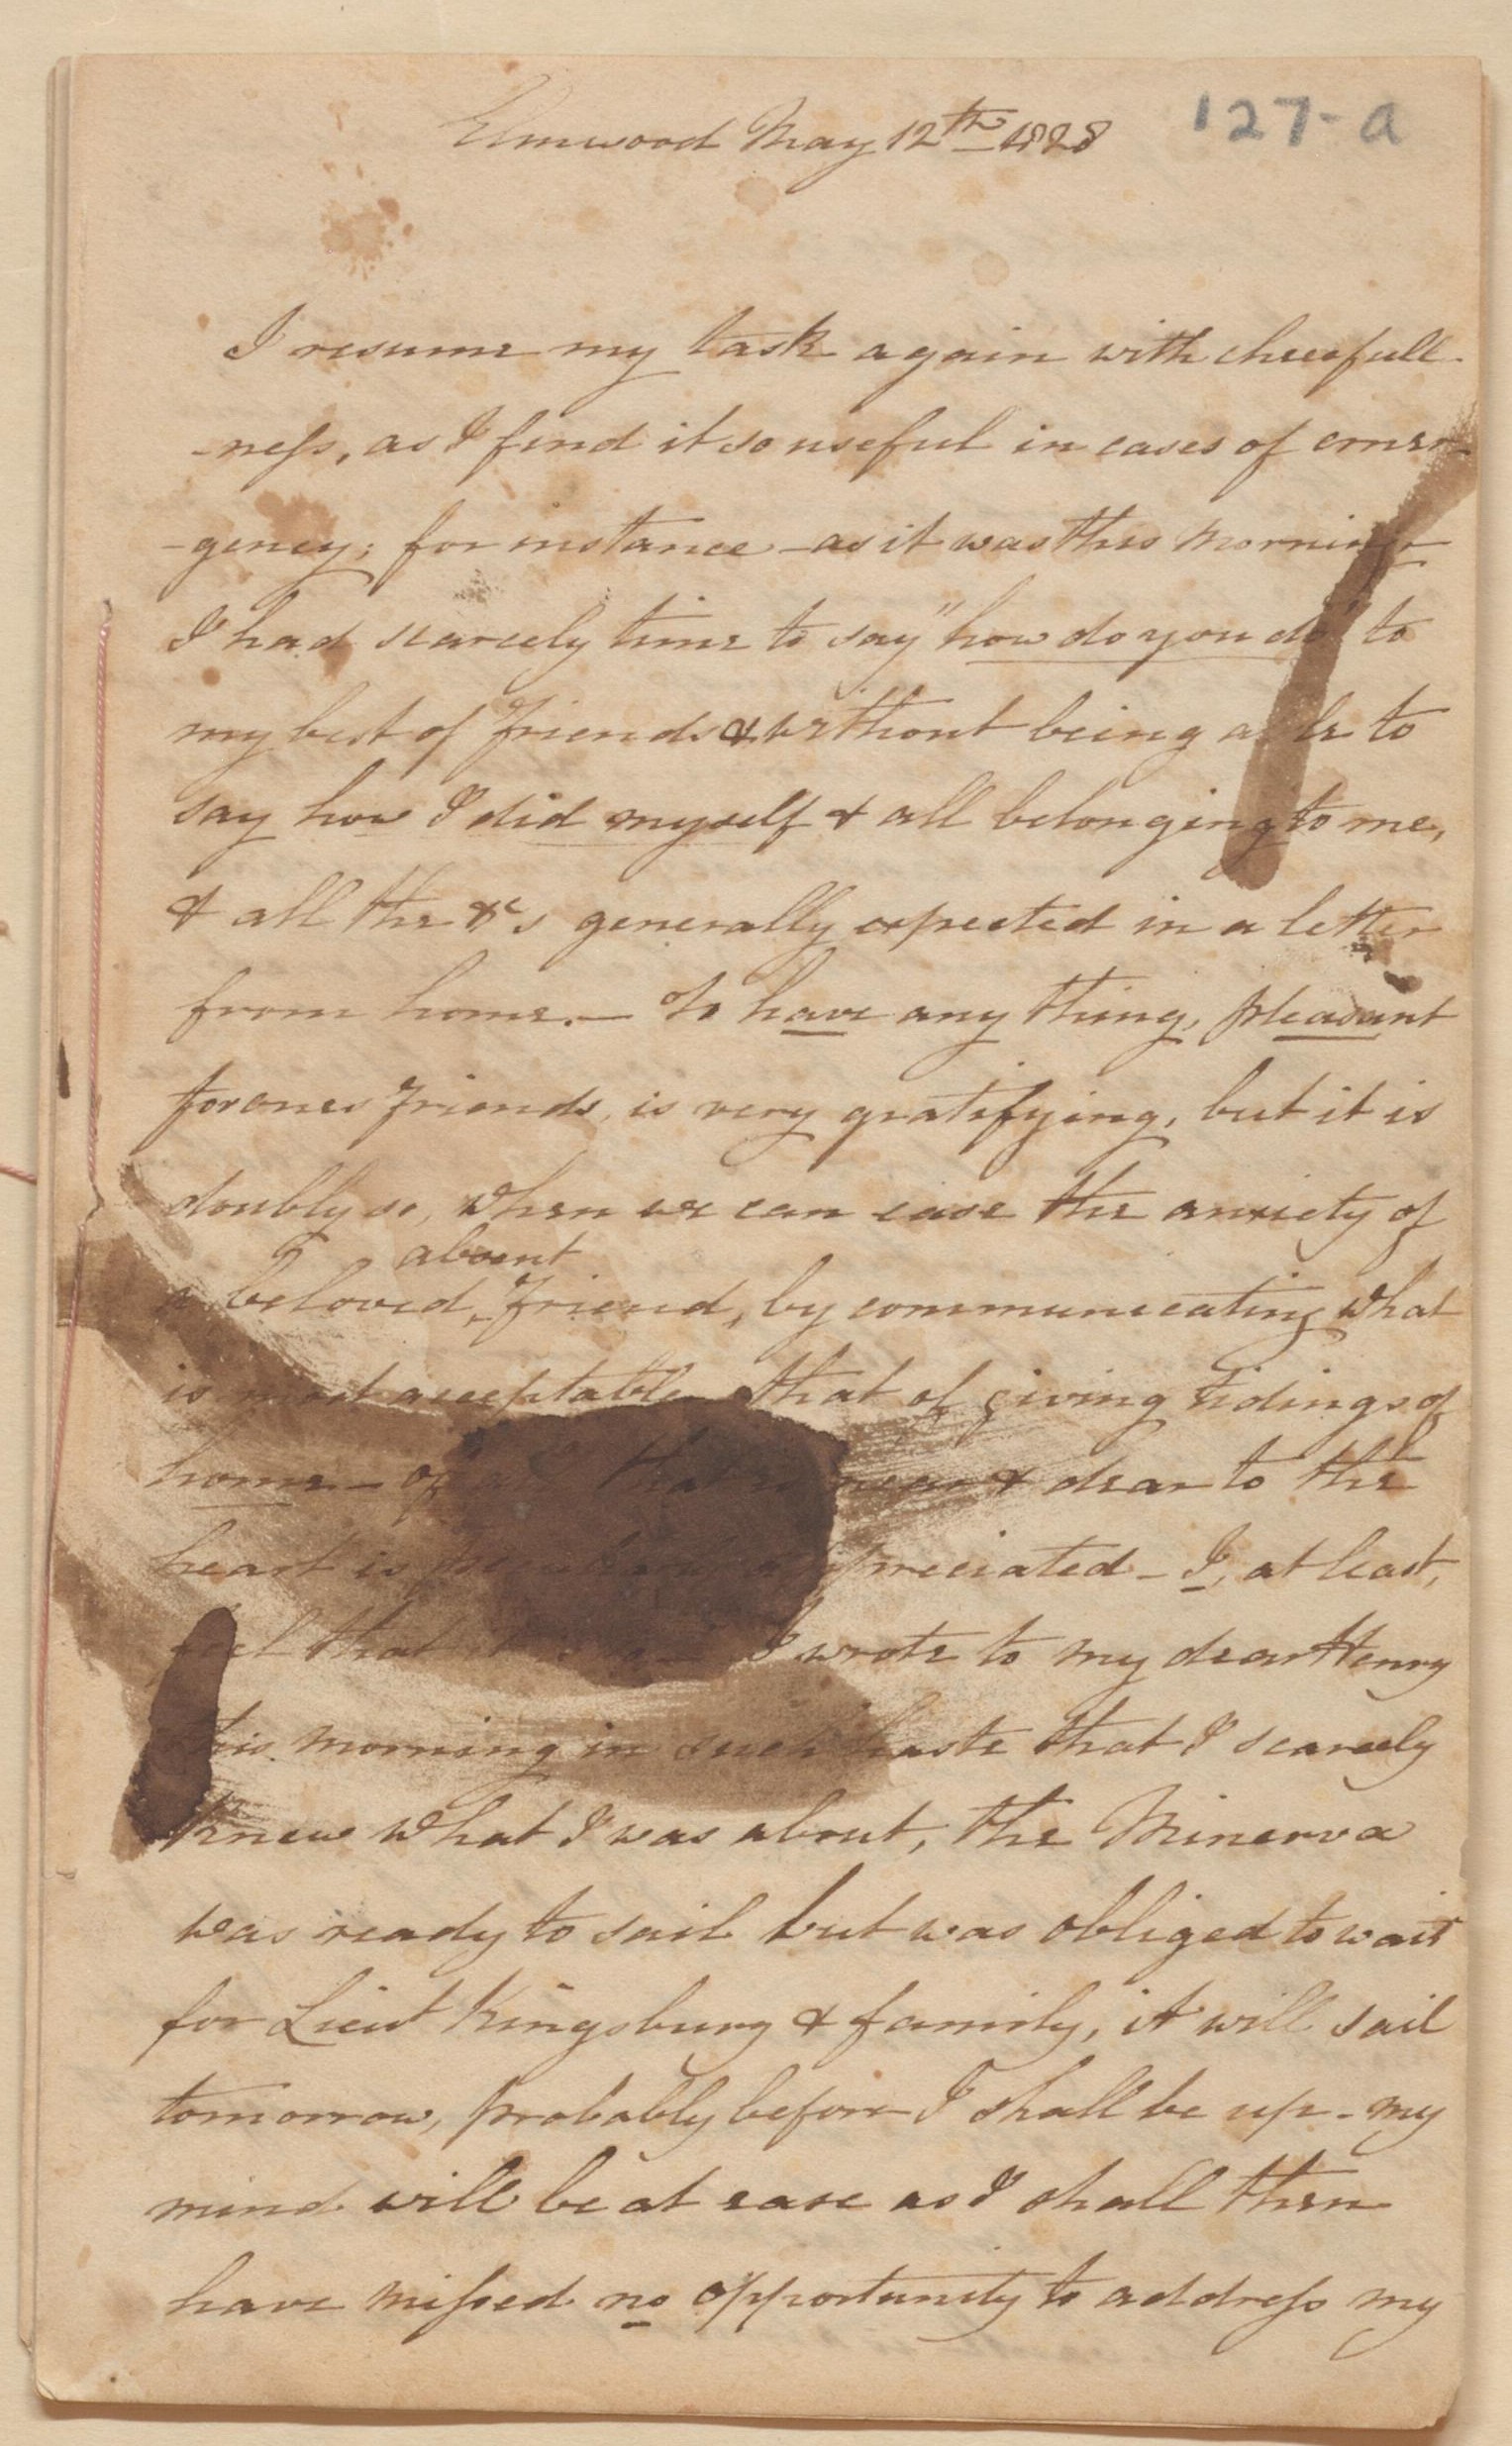 Elmwood May 12th 1828
127-a
I resume my task again with cheerfull-
-ness, as I find it so useful in cases of emer-
-gency; for instance - as it was this morning
I had scarcely time to say "how do you do" to
my best of Friends & without being able to
say how I did myself & all belonging to me,
& all the &c's generally expected in a letter
from home. - To have any thing, pleasant
for ones Friends, is very gratifying, but it is
doubly so, when we can ease the anxiety of
absent
a beloved, Friend, by communicating what
is most acceptable, that of giving tidings of
home - of all that is near & dear to the
heart is appreciated - I, at least,
feel that I wrote to my dear Henry
this morning in such haste that I scarcely
knew what I was about, the Minerva
was ready to sail but was obliged to wait
for Lieut Kingsbury & family, it will sail
tomorrow, probably before I shall be up - my
mind will be at ease as I shall then
have missed no opportunity to address my